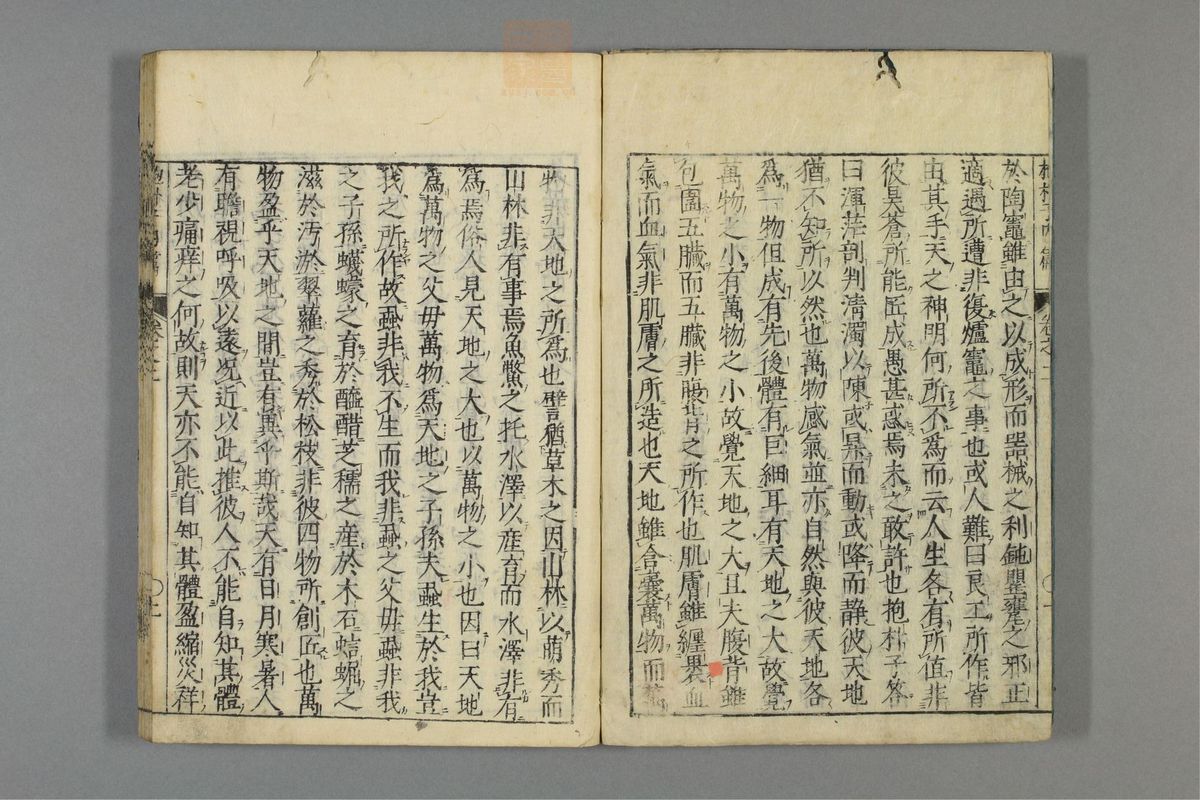 於陶竈雖由之以成形而器械之利鈍罌甕之邪正
適遇所遭非復爐竈之事也或人難曰良工所作皆
由其手天之神明何所不為而云人生各有所值非
彼昊蒼所能匠成愚甚惑焉未之敢許也抱朴子答
曰渾茫剖判清濁以陳或昇而動或降而静彼天地
猶不知所以然也萬物感氣並亦自然與彼天地各
為一物但成有先後體有巨細耳有天地之大故覺
萬物之小有萬物之小故覺天地之大且夫腹背雖
包圍五臟而五臟非腹背之所作也肌膚雖纒裹血
氣而血氣非肌膚之所造也天地雖含囊萬物而萬
物非天地之所為也譬猶草木之因山林以萌秀而
山林非有事焉魚鱉之托水澤以産育而水澤非有
為焉俗人見天地之大也以萬物之小也因曰天地
為萬物之父母萬物為天地之子孫夫蝨生於我豈
我之所作故蝨非我不生而我非蝨之父母蝨非我
之子孫蠛蠓之育於醯醋芝檽之産於木石蛣𧌑之
滋於汚淤翠蘿之秀於松枝非彼四物所創匠也萬
物盈乎天地之間豈有異乎斯哉天有日月寒暑人
有瞻視呼吸以遠况近以此推彼人不能自知其體
老少痛痒之何故則天亦不能自知其體盈縮災祥